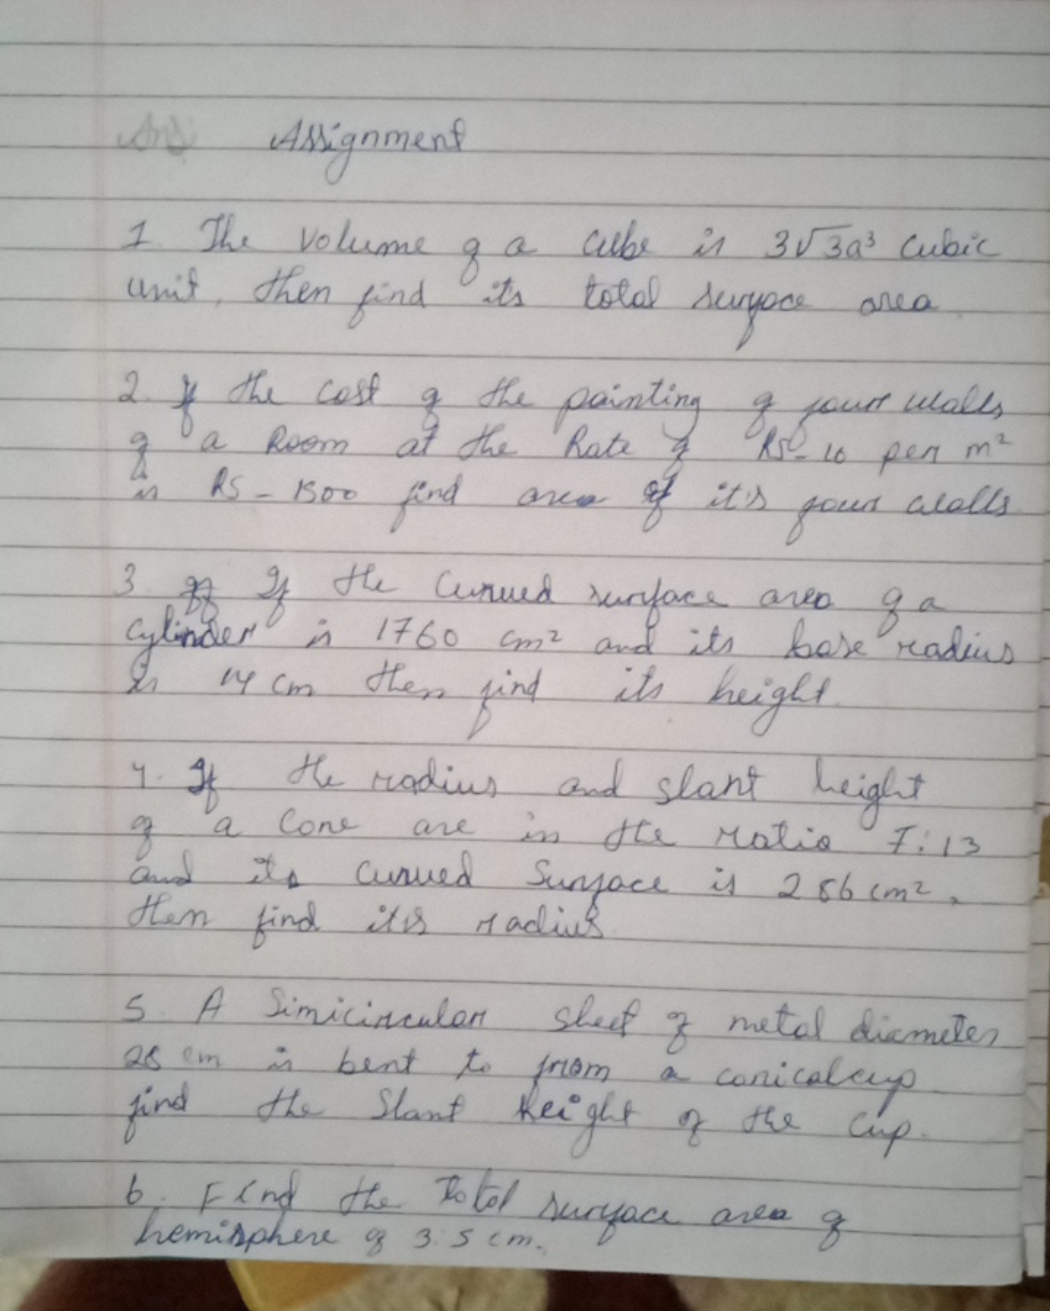 Ans
Assignment
1. The volume of a cube is 3√3a³ cubic
unit, then find its total surface area.
2. If the cost of the painting of four walls
of a Room at the Rate of Rs-10 per m²
is RS-1500 find area of it's four walls
3. If the curved surface area of a
cylinder is 1760 cm² and its base radius
is 14 cm then find its height.
4. If the radius and slant height
of a Cone are in the ratio 7:13
and its curved Surface is 286 cm²,
then find its radius.
5. A Simicircular sheet of metal diameter
28 cm is bent to from a conicalcup
find the Slant height of the cup.
6. Find the Total surface area of
hemisphere of 3.5 cm.